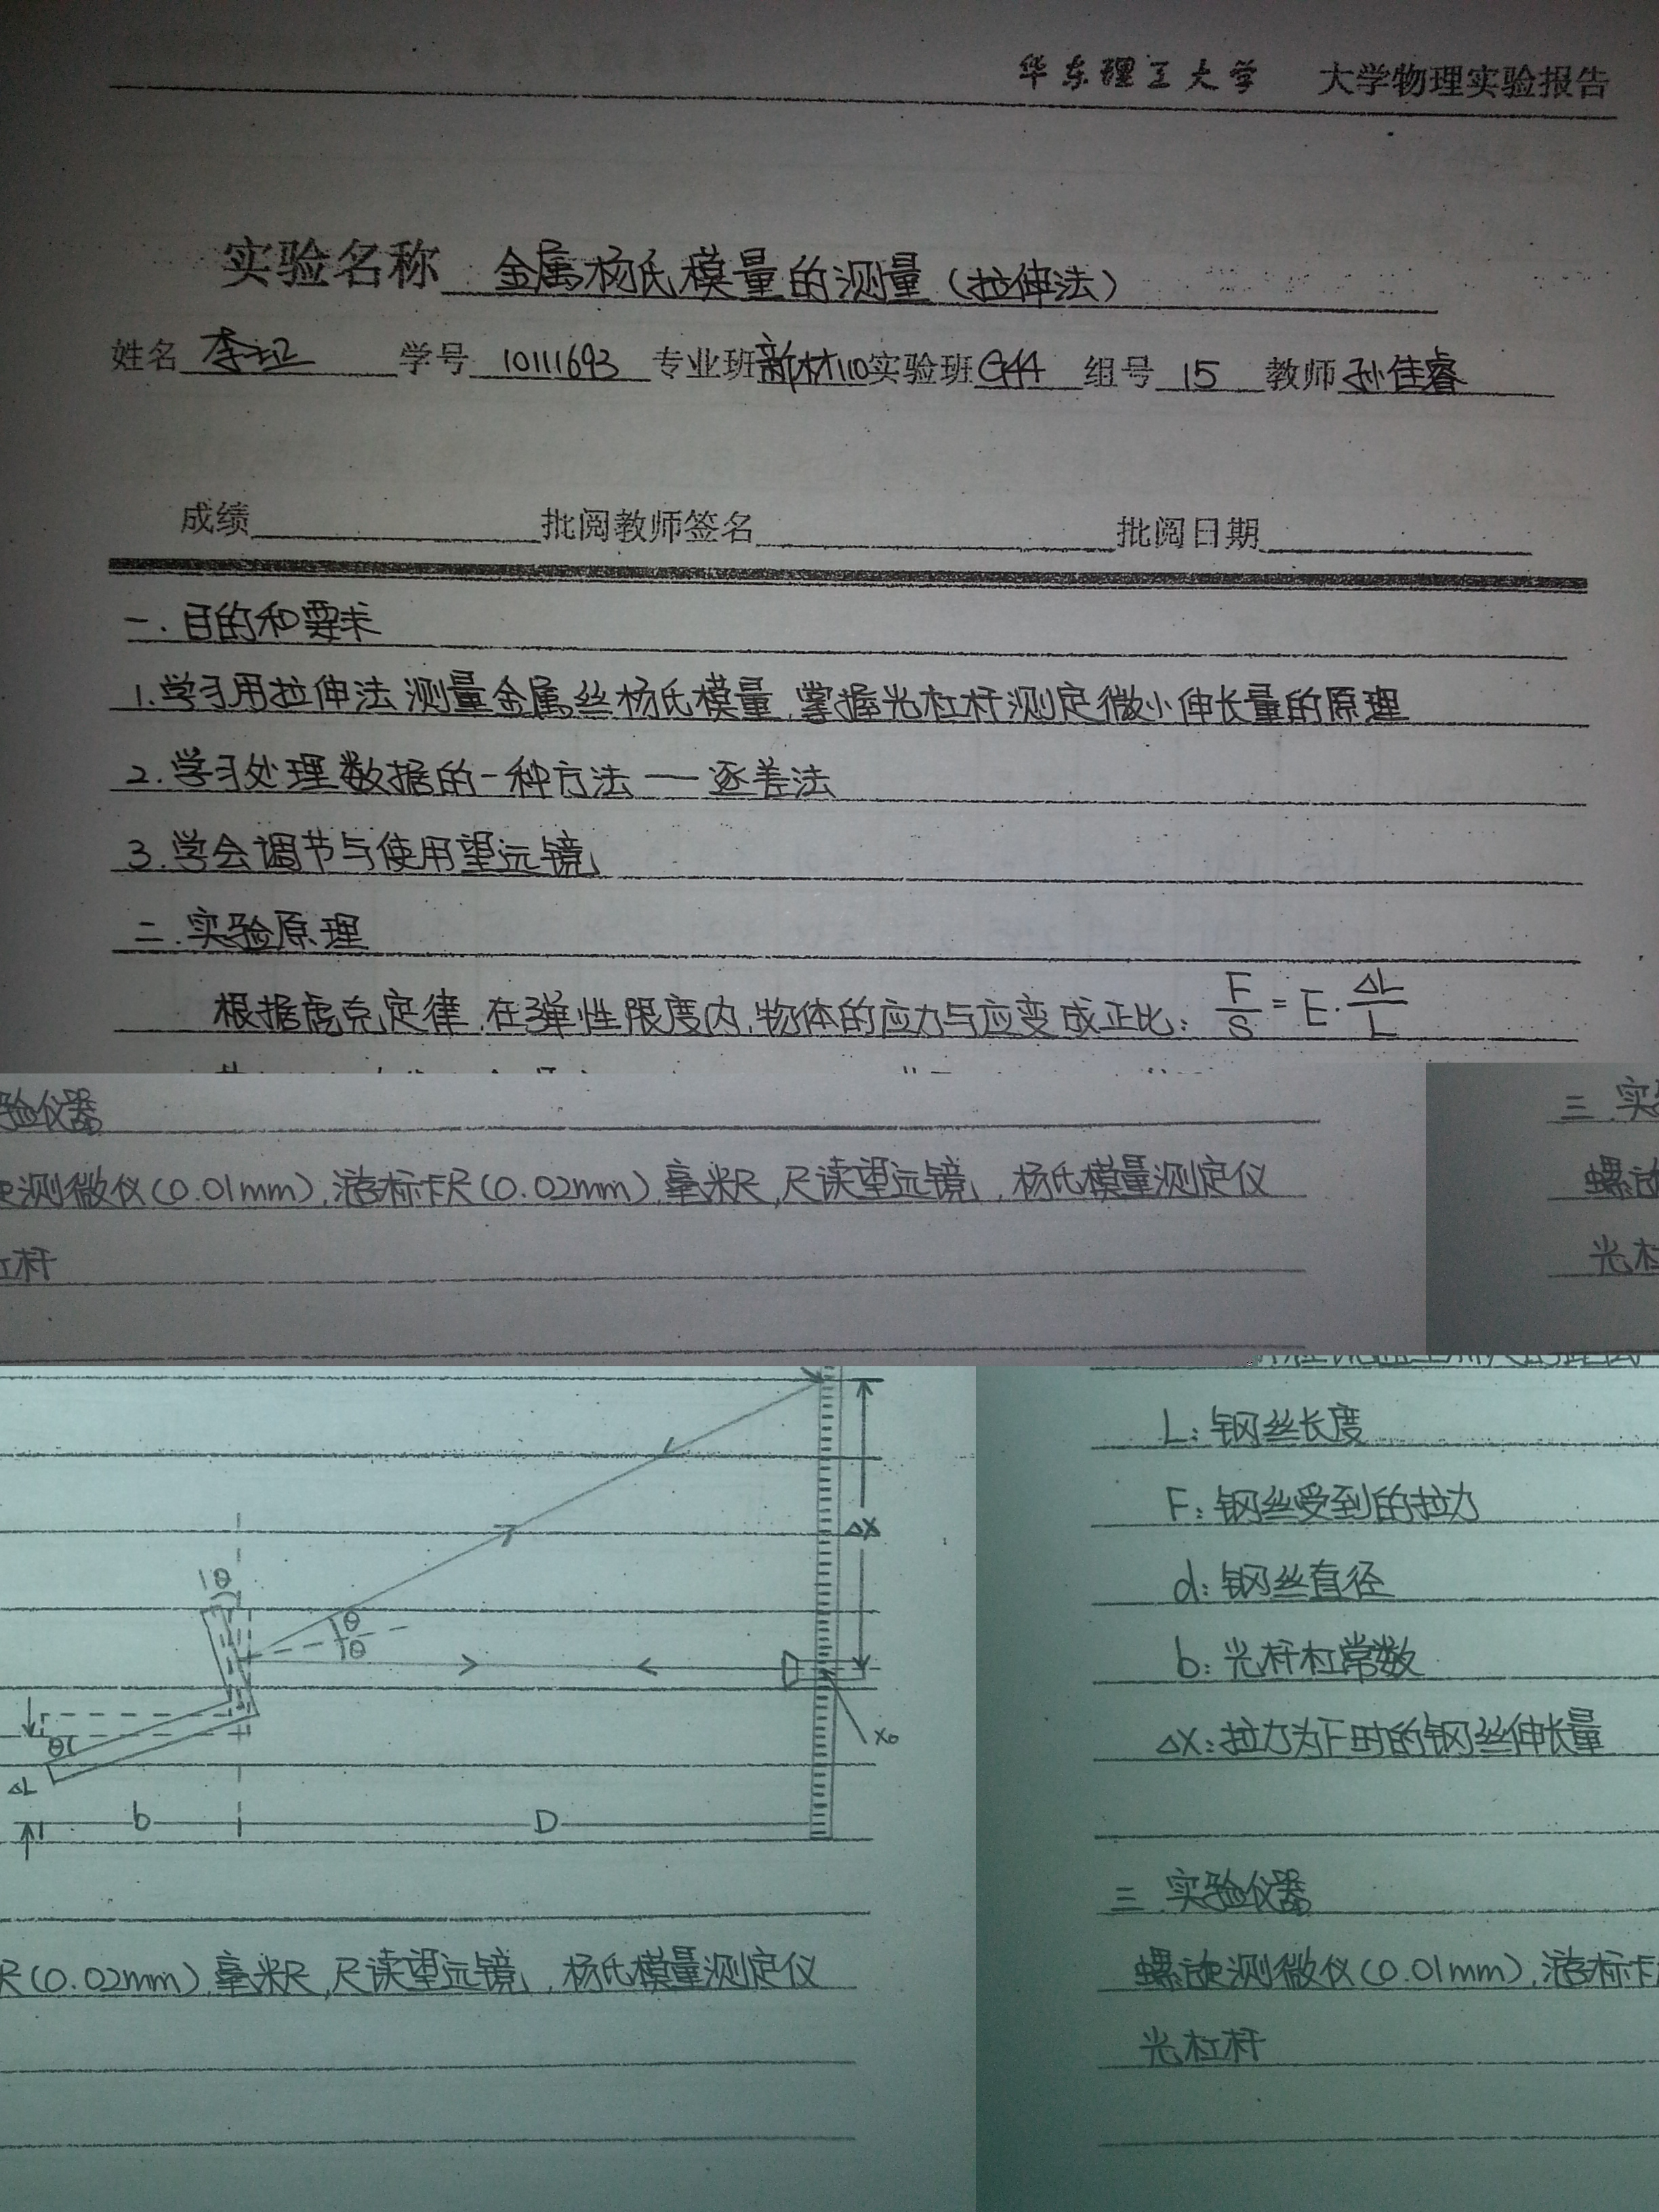 华东理工大学 大学物理实验报告
实验名称 金属杨氏模量的测量(拉伸法)
姓名 学号 10111693 专业班 新材110 实验班 组号 15 教师 孙佳睿
成绩 批阅教师签名 批阅日期
一.目的和要求
1.学习用拉伸法测量金属丝杨氏模量,掌握光杠杆测定微小伸长量的原理
2.学习处理数据的一种方法——逐差法
3.学会调节与使用望远镜
二.实验原理
根据虎克定律,在弹性限度内,物体的应力与应变成正比: F/S=E·ΔL/L
验仪器
测微仪(0.01mm),游标卡尺(0.02mm),毫米尺,尺读望远镜,杨氏模量测定仪
杠杆
三.实
螺旋
光杠
ΔX
θ
θ
θ
θ
X₀
ΔL
b
D
尺(0.02mm),毫米尺,尺读望远镜,杨氏模量测定仪
L:钢丝长度
F:钢丝受到的拉力
d:钢丝直径
b:光杆杠常数
ΔX:拉力为F时的钢丝伸长量
三.实验仪器
螺旋测微仪(0.01mm),游标卡
光杠杆